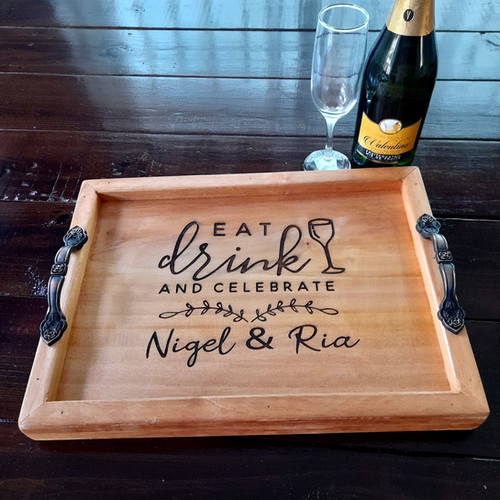 EAT
drink
AND CELEBRATE
Nigel & Ria
Valentino